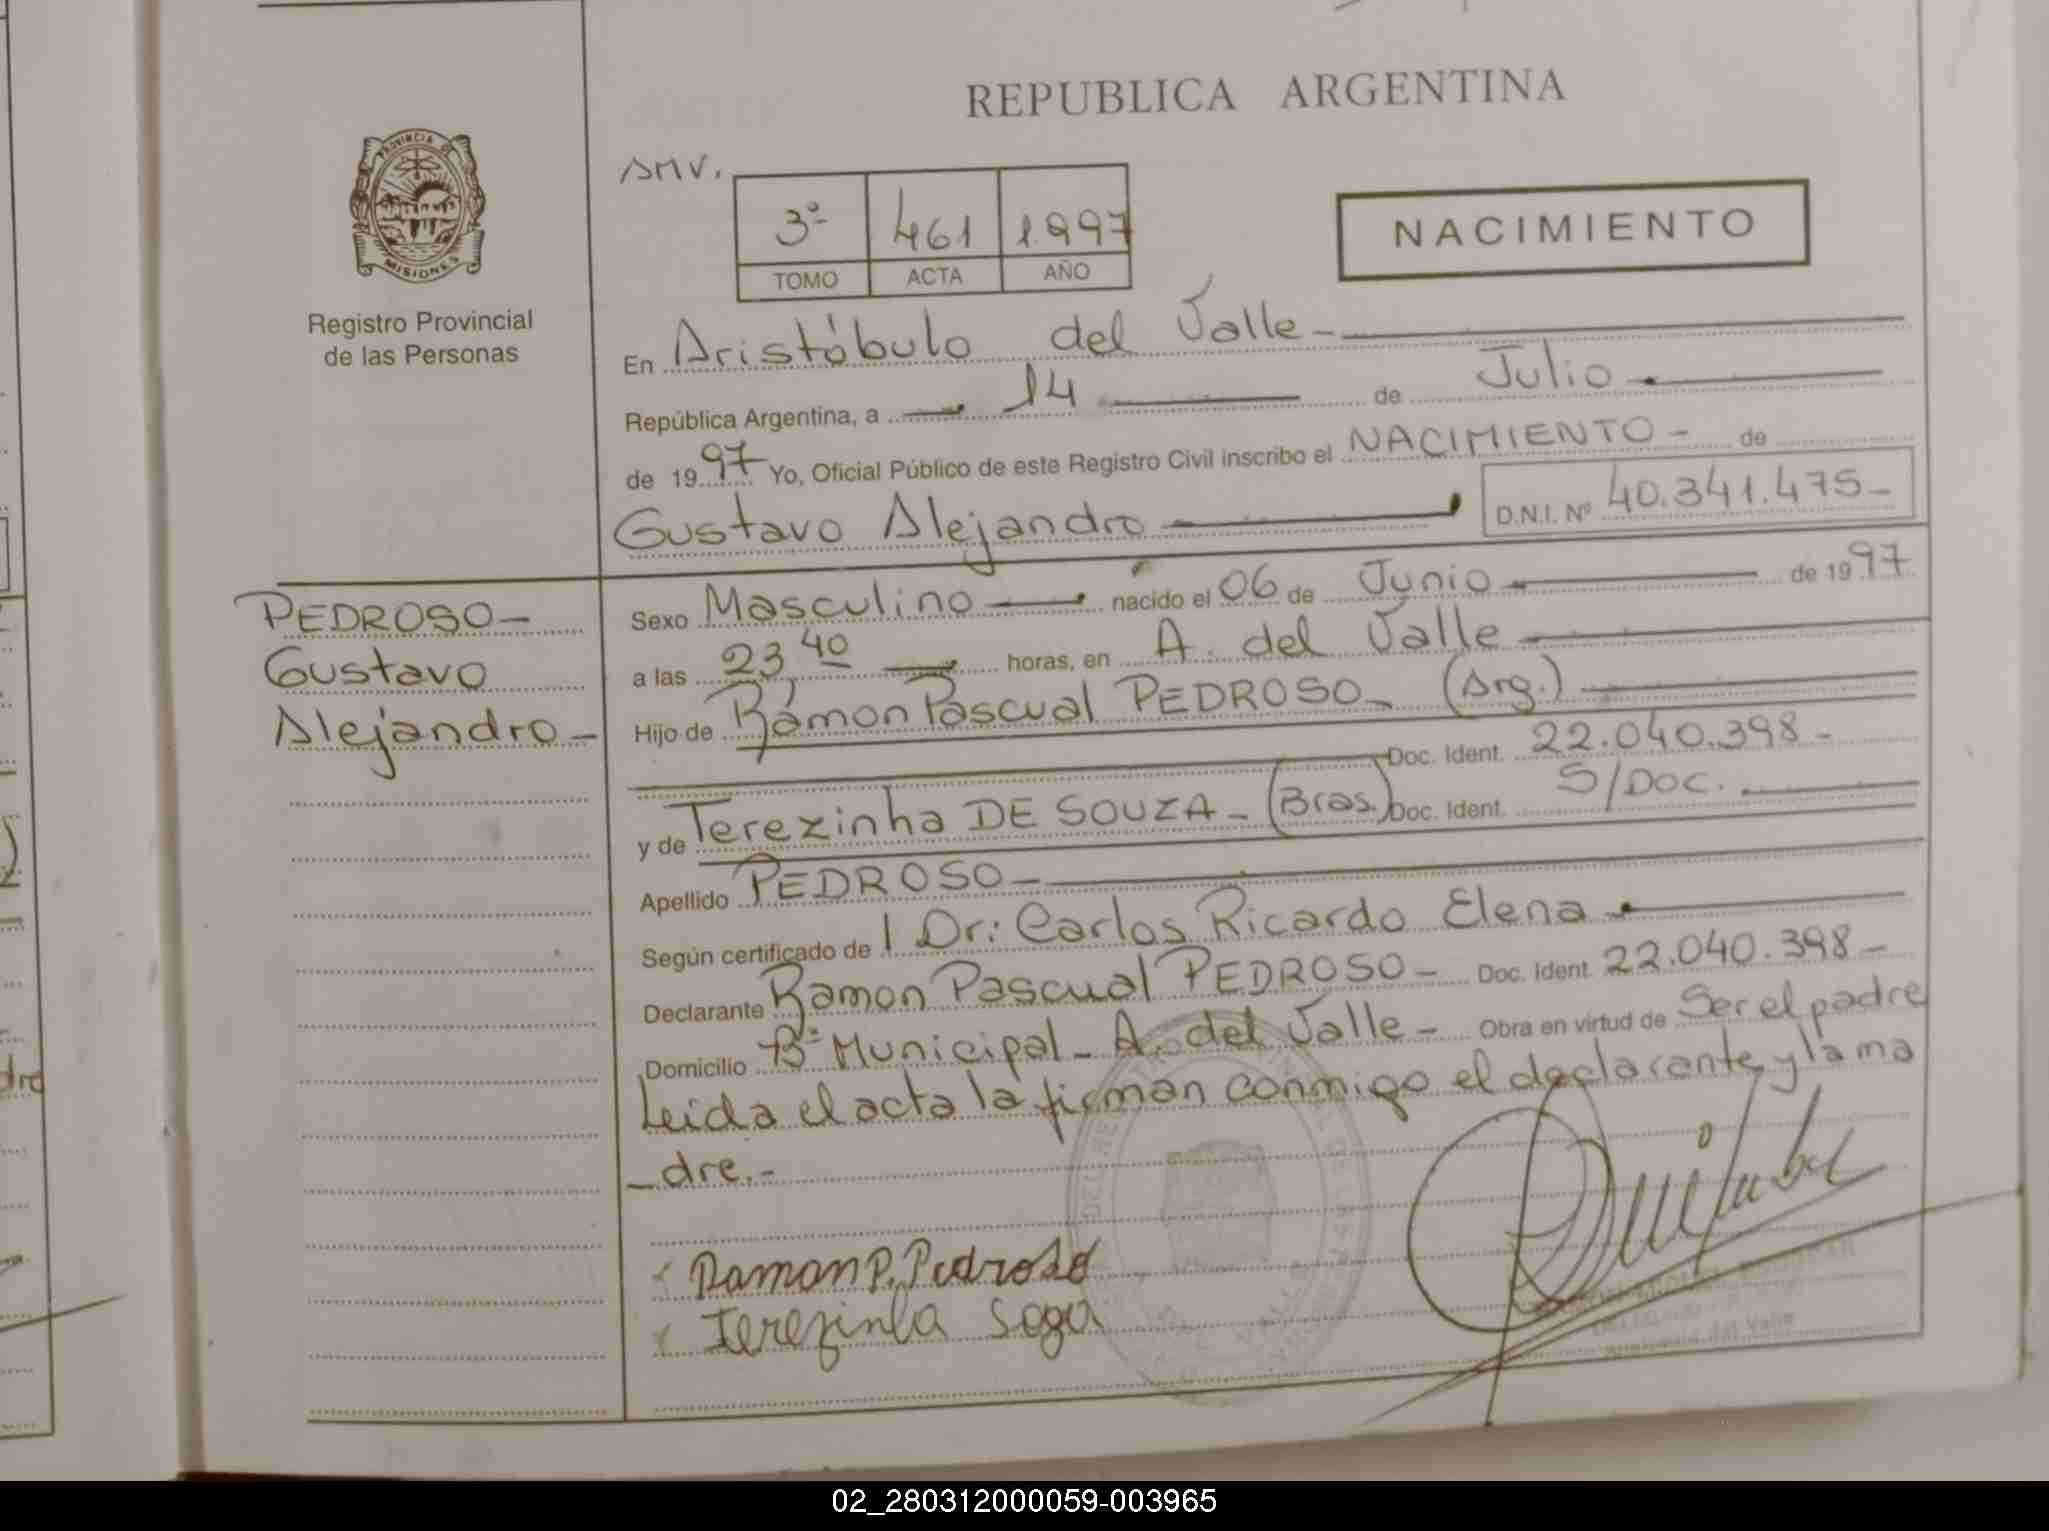 REPUBLICA ARGENTINA
PROVINCIA DE
MISIONES
Registro Provincial
de las Personas
3º 461 1997
TOMO ACTA AÑO
NACIMIENTO
En Aristóbulo del Valle -
República Argentina, a 14 de Julio
de 1997 Yo, Oficial Público de este Registro Civil inscribo el NACIMIENTO - de
Gustavo Alejandro D.N.I. Nº 40.341.475-
PEDROSO-
Gustavo
Alejandro-
Sexo Masculino nacido el 06 de Junio de 1997
a las 23,40 horas, en A. del Valle
Hijo de Ramon Pascual PEDROSO- (Arg.)
Doc. Ident. 22.040.398-
y de Terezinha DE SOUZA- (Bras.) Doc. Ident. S/DOC.
Apellido PEDROSO-
Según certificado de Dr: Carlos Ricardo Elena
Declarante Ramon Pascual PEDROSO- Doc. Ident. 22.040.398-
Domicilio Bº Municipal - A. del Valle - Obra en virtud de Ser el padre
Leida el acta la firman conmigo el declarante y la ma
_dre.-
Ramon P. Pedroso
02_280312000059-003965